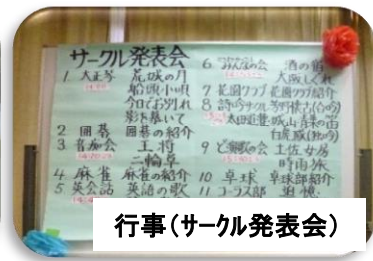 サークル発表会
1 大正琴 荒城の月
船頭小唄
今日でお別れ
影を慕いて
2 囲碁 囲碁の紹介
3 音痴会 王将
二輪草
4 麻雀 麻雀の紹介
5 英会話 英語の歌
6 みんなの会 酒の
大阪しぐれ
7 花園クラブ 花園クラブ紹介
8 詩吟サークル 芳野懐古(合吟)
太田道灌 城山
白虎隊(独吟)
9 土佐女房
時雨旅
10 卓球 卓球部紹介
11 コーラス部 追憶
行事(サークル発表会)